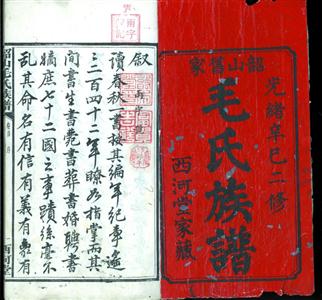 韶山舊家
光緒辛巳二修
毛氏族譜
西河堂家藏
敘
讀春秋一書按其編年紀事遙遙
二百四十二年瞭如指掌而其
間書生書卒書葬書婚聘書
嫡庶七十二國之事蹟絲毫不
亂其命名有信有義有象有
韶山毛氏族譜
西河堂